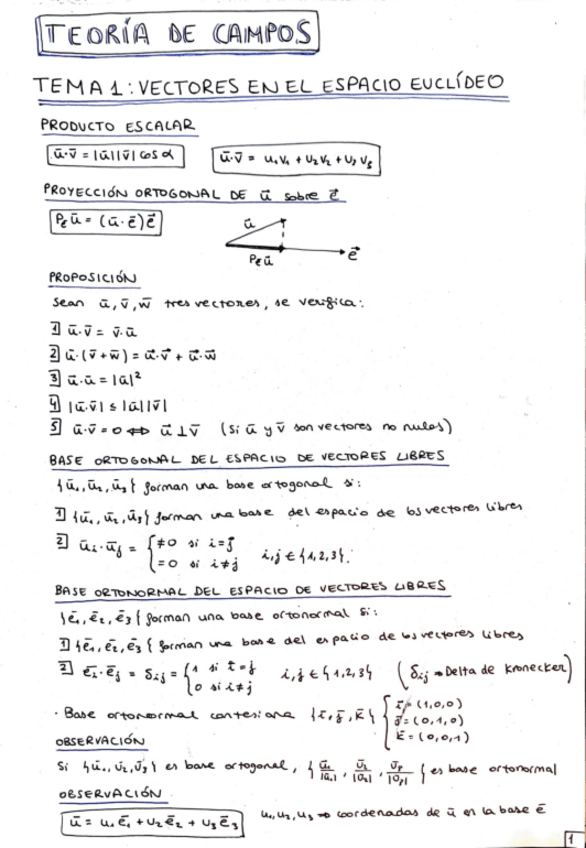 TEORÍA DE CAMPOS
TEMA 1: VECTORES EN EL ESPACIO EUCLÍDEO
PRODUCTO ESCALAR
ū·v̄ = |ū||v̄| cos α    ū·v̄ = u₁v₁ + u₂v₂ + u₃v₃
PROYECCIÓN ORTOGONAL DE ū sobre ē
P_ē ū = (ū·ē)ē
ū
P_ē ū
ē
PROPOSICIÓN
Sean ū, v̄, w̄ tres vectores, se verifica:
1 ū·v̄ = v̄·ū
2 ū·(v̄+w̄) = ū·v̄ + ū·w̄
3 ū·ū = |ū|²
4 |ū·v̄| ≤ |ū||v̄|
5 ū·v̄ = 0 ⇔ ū ⊥ v̄ (Si ū y v̄ son vectores no nulos)
BASE ORTOGONAL DEL ESPACIO DE VECTORES LIBRES
{ū₁, ū₂, ū₃} forman una base ortogonal si:
1 {ū₁, ū₂, ū₃} forman una base del espacio de los vectores libres
2 ūᵢ·ūⱼ = { ≠0 si i=j
=0 si i≠j    i,j ∈ {1,2,3}.
BASE ORTONORMAL DEL ESPACIO DE VECTORES LIBRES
{ē₁, ē₂, ē₃} forman una base ortonormal si:
1 {ē₁, ē₂, ē₃} forman una base del espacio de los vectores libres
2 ēᵢ·ēⱼ = δᵢⱼ = { 1 si i=j
0 si i≠j    i,j ∈ {1,2,3} (δᵢⱼ ⇒ Delta de Kronecker)
· Base ortonormal cartesiana {ī, j̄, k̄} { ī = (1,0,0)
j̄ = (0,1,0)
k̄ = (0,0,1)
OBSERVACIÓN
Si {ū₁, ū₂, ū₃} es base ortogonal, {ū₁/|ū₁|, ū₂/|ū₂|, ū₃/|ū₃|} es base ortonormal
OBSERVACIÓN
ū = u₁ē₁ + u₂ē₂ + u₃ē₃    u₁, u₂, u₃ ⇒ coordenadas de ū en la base ē
1